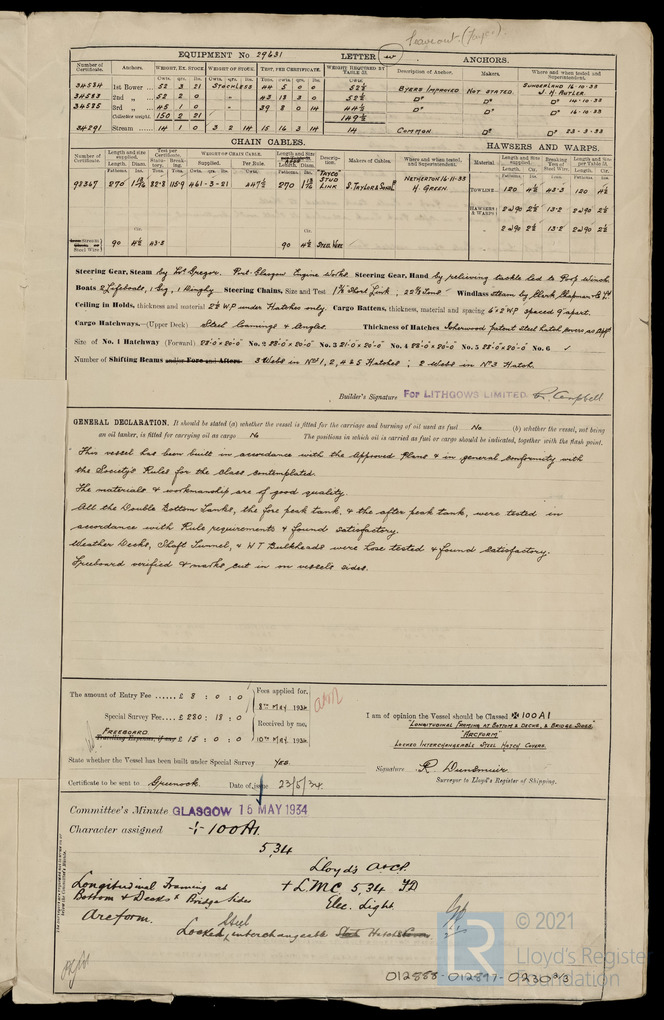 EQUIPMENT No 29631 LETTER
ANCHORS.
Number of Certificate. Anchors. WEIGHT, EX. STOCK. WEIGHT OF STOCK. TEST, PER CERTIFICATE. WEIGHT REQUIRED BY TABLE 53. Description of Anchor. Makers. Where and when tested and Superintendent.
Cwts. qrs. lbs. Cwts. qrs. lbs. Tons. cwts. qrs. lbs. Cwts.
34584 1st Bower 52 3 21 STOCKLESS 44 5 0 0 52½ BYERS IMPROVED NOT STATED. SUNDERLAND 16-10-33
34583 2nd „ 52 2 0 43 18 3 0 52½ Do Do J. H. BUTLER. Do 14-10-33
34585 3rd „ 45 1 0 39 8 0 14 44½ Do Do Do 16-10-33
Collective weight 150 2 21 149½
34291 Stream 14 1 0 3 2 14 15 16 3 14 14 COMMON Do Do 23-3-33
CHAIN CABLES. HAWSERS AND WARPS.
Number of Certificate. Length and size supplied. Test per Certificate. WEIGHT OF CHAIN CABLE. Length and Size per Table 53. Description. Makers of Cables. Where and when tested, and Superintendent. Material. Length and Size supplied. Breaking Test of Steel Wire. Length and Size per Table 53.
Length. Diam. Stat- Break- ing. Supplied. Per Rule. Length. Diam. Length. Cir. Length. Cir.
98367 270 82-8 115-9 461-3-21 447½ 270 "TAYCO" STUD LINK S. TAYLOR & SONS Ld NETHERTON 16-11-33 H. GREEN. TOWLINE 120 4½ 43-3 120 4½
HAWSERS & WARPS 2 @ 90 2½ 13-2 2 @ 90 2½
„ 2 @ 90 2½ 13-2 2 @ 90 2½
Stream Steel Wire 90 4½ 43-5 90 4½ STEEL WIRE
Steering Gear, Steam by Jas. Gregor. Port-Glasgow Engine Works. Steering Gear, Hand by relieving tackle led to Poop Winch
Boats 2 Lifeboats, 1 Gig, 1 Dinghy Steering Chains, Size and Test 1⅜ Short Link, 22⅝ Tons Windlass Steam by Clark Chapman & Co Ltd
Ceiling in Holds, thickness and material 2½ W.P under Hatches only. Cargo Battens, thickness, material and spacing 6 x 2 W.P spaced 9" apart.
Cargo Hatchways.—(Upper Deck) Steel Coamings & Angles. Thickness of Hatches Isherwood patent steel hatch covers as App
Size of No. 1 Hatchway (Forward) 28-0 x 20-0 No. 2 28-0 x 20-0 No. 3 21-0 x 20-0 No. 4 28-0 x 20-0 No. 5 28-0 x 20-0 No. 6 ✓
Number of Shifting Beams and/or Fore and Afters. 3 Webs in No 1, 2, 4 & 5 Hatches; 2 Webs in No 3 Hatch.
Builder's Signature FOR LITHGOWS LIMITED. R. Campbell
GENERAL DECLARATION. It should be stated (a) whether the vessel is fitted for the carriage and burning of oil used as fuel No. (b) whether the vessel, not being
an oil tanker, is fitted for carrying oil as cargo No The positions in which oil is carried as fuel or cargo should be indicated, together with the flash point.
This vessel has been built in accordance with the approved Plans & in general conformity with
the Society's Rules for the class contemplated.
The materials & workmanship are of good quality.
All the Double Bottom Tanks, the fore peak tank, & the after peak tank, were tested in
accordance with Rule requirements & found satisfactory.
Weather Decks, Shaft Tunnel, & W T Bulkheads were hose tested & found satisfactory.
Freeboard verified & marks cut in on vessels sides.
The amount of Entry Fee ...... £ 8 : 0 : 0 Fees applied for,
8th May, 1934
Special Survey Fee.... £ 280 : 18 : 0 Received by me,
FREEBOARD
Travelling Expenses, if any £ 15 : 0 : 0 10th May, 1934
I am of opinion the Vessel should be Classed ✠ 100A1
"LONGITUDINAL FRAMING AT BOTTOM & DECKS, & BRIDGE SIDES"
"ARCFORM"
LOCKED INTERCHANGEABLE STEEL HATCH COVERS.
State whether the Vessel has been built under Special Survey Yes.
Signature R Dunsmuir
Surveyor to Lloyd's Register of Shipping.
Certificate to be sent to Greenock. Date of issue 23/5/34
Committee's Minute GLASGOW 15 MAY 1934
Character assigned + 100A1.
5,34
Lloyd's A&CP.
Longitudinal Framing at + LMC 5,34 FD
Bottom & Decks & Bridge Sides Elec. Light
Arcform.
Locked, Steel interchangeable Hatch
© 2021
Lloyd's Register
Foundation
012888-012897-0230 3/3